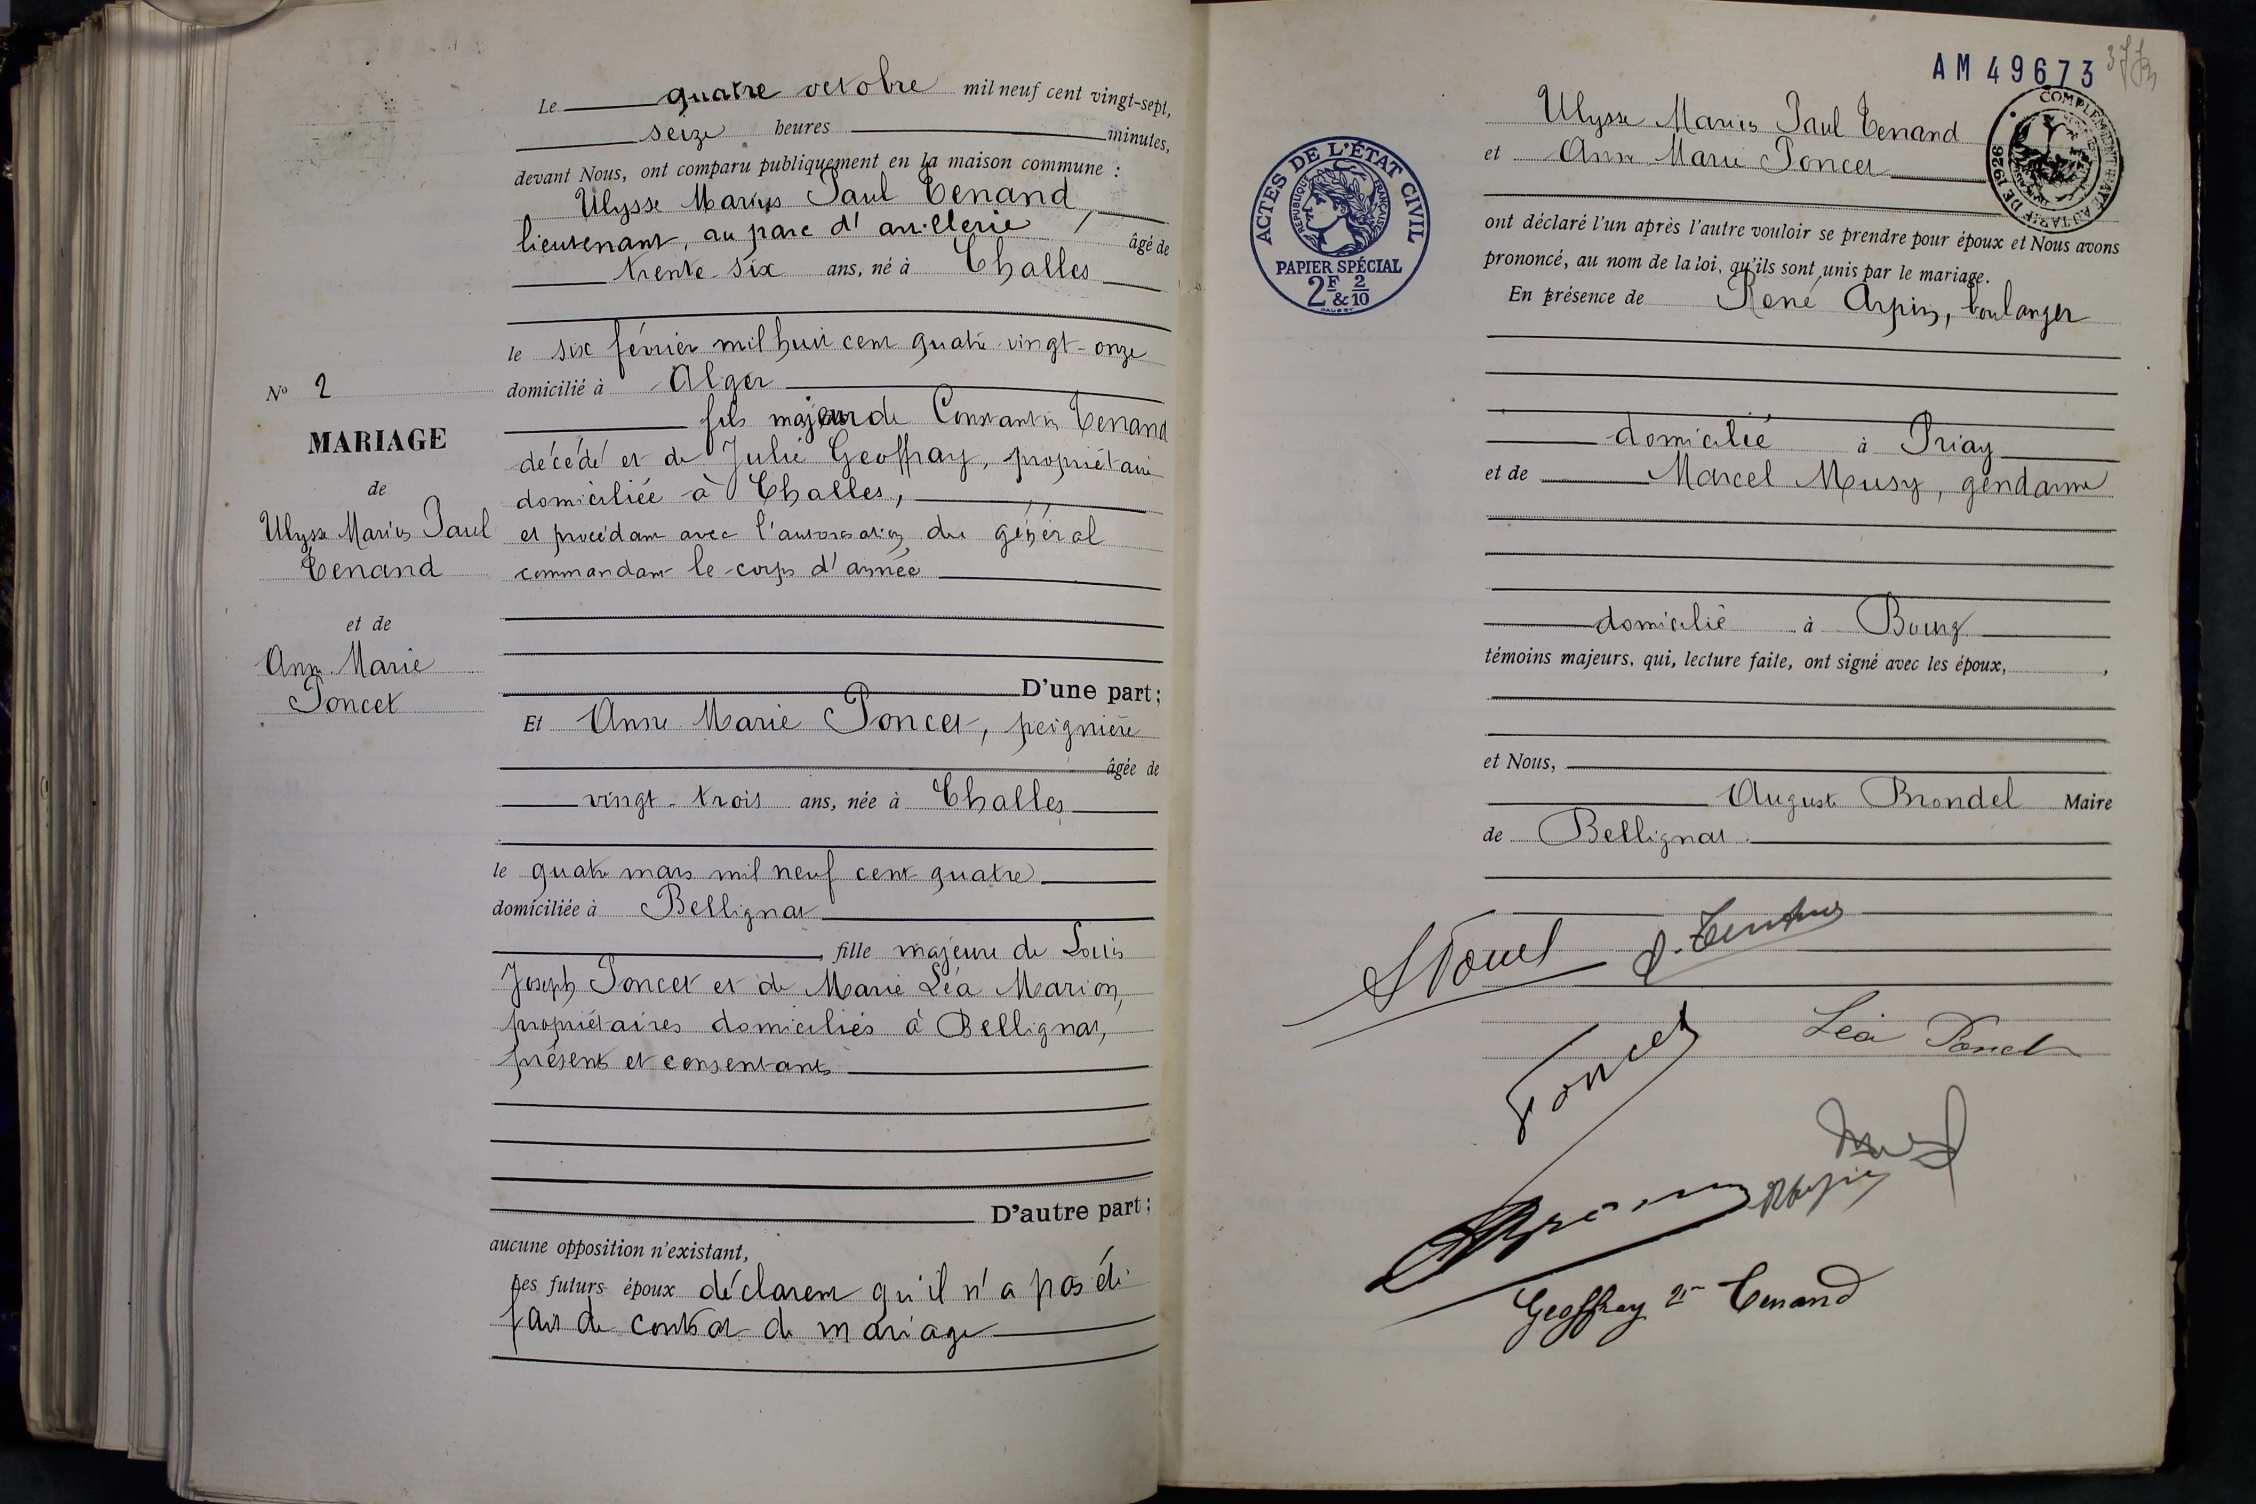 Le quatre octobre mil neuf cent vingt-sept,
seize heures minutes,
devant Nous, ont comparu publiquement en la maison commune :
Ulysse Marius Paul Tenand,
lieutenant, au parc d'artillerie âgé de
trente-six ans, né à Challes
le six février mil huit cent quatre-vingt-onze
domicilié à Alger
fils majeur de Constantin Tenand
décédé et de Julie Geoffray, propriétaire
domiciliée à Challes,
et procédant avec l'autorisation du général
commandant le corps d'armée
D'une part;
Et Anne Marie Poncet, peignière
âgée de
vingt-trois ans, née à Challes
le quatre mars mil neuf cent quatre
domiciliée à Bellignat
fille majeure de Louis
Joseph Poncet et de Marie Léa Marion,
propriétaires domiciliés à Bellignat,
présents et consentants
D'autre part;
aucune opposition n'existant,
Les futurs époux déclarent qu'il n'a pas été
fait de contrat de mariage
No 2
MARIAGE
de
Ulysse Marius Paul
Tenand
et de
Anne Marie
Poncet
AM 49673
COMPLÉMENT
TARIF DE 1926
ACTES DE L'ÉTAT CIVIL
RÉPUBLIQUE FRANÇAISE
PAPIER SPÉCIAL
2F & 2/10
Ulysse Marius Paul Tenand
et Anne Marie Poncet
ont déclaré l'un après l'autre vouloir se prendre pour époux et Nous avons
prononcé, au nom de la loi, qu'ils sont unis par le mariage.
En présence de René Arpin, boulanger
domicilié à Priay
et de Marcel Musy, gendarme
domicilié à Bourg
témoins majeurs, qui, lecture faite, ont signé avec les époux, ,
et Nous,
Auguste Brondel Maire
de Bellignat
Poncet
Léa Poncet
Geoffray Ve Tenand